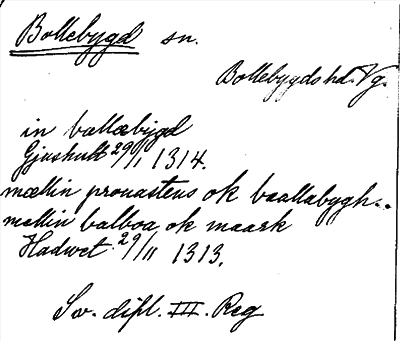 Bollebygd sn.
Bollebygdshd. Vg.
in ballæbijgd
Gjushult 29/1 1314.
mællin prouastens ok baallabygh..
mællin balboa ok maark
Hadwet 29/11 1313.
Sv. dipl. III. Reg